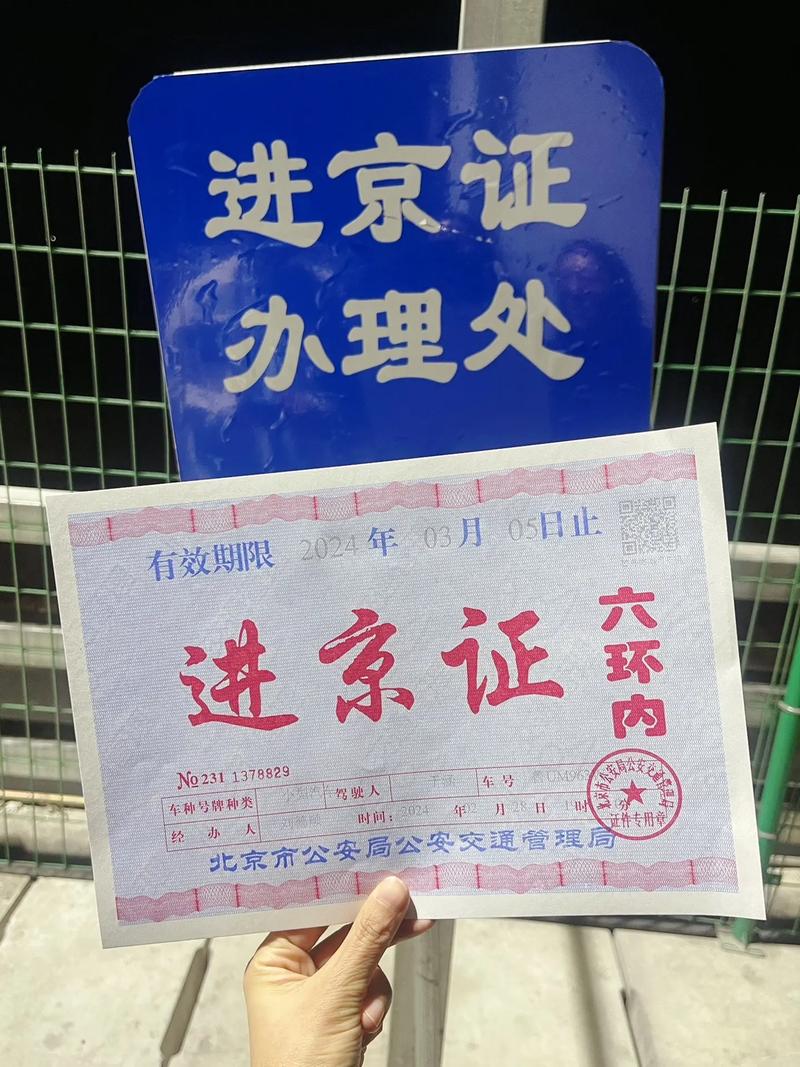 进京证
办理处
有效期限 2024 年 03 月 05 日止
进京证
六环内
No 231 1378829
车种号牌种类 驾驶人 车号
经办人 时间: 2024 年 02 月 28 日 时 分
北京市公安局公安交通管理局
北京市公安局公安交通管理局
证件专用章